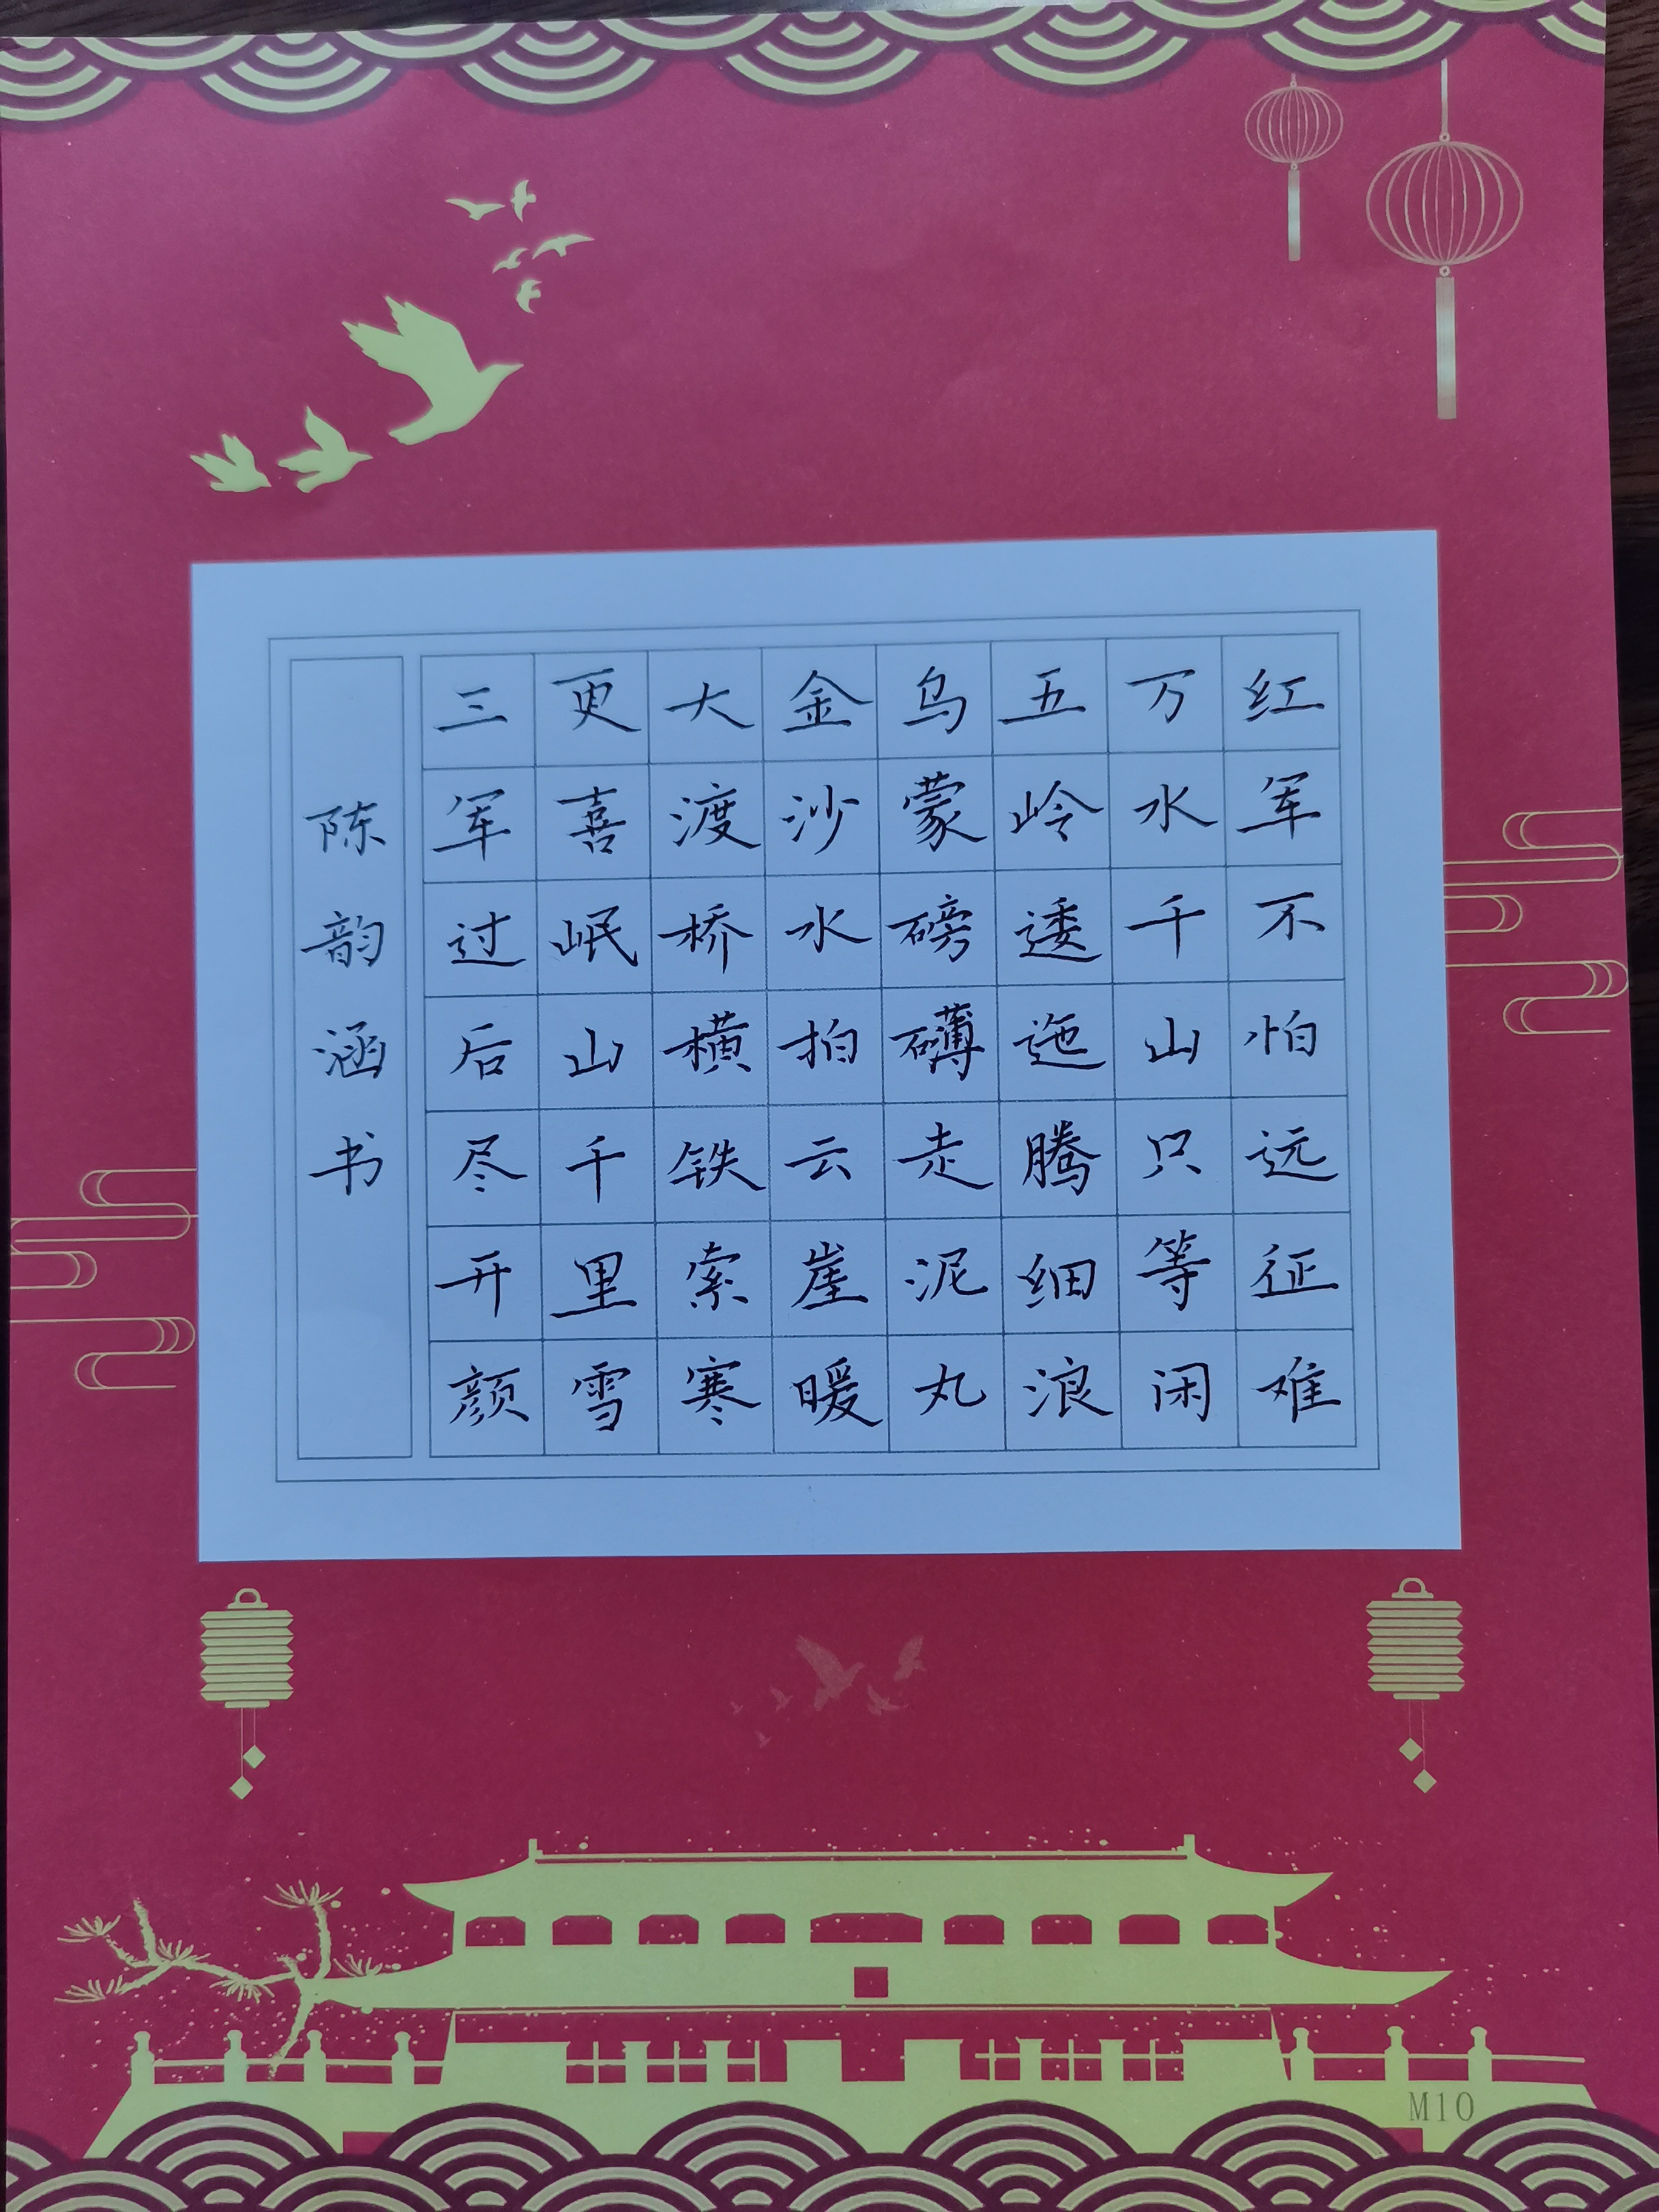 红军不怕远征难
万水千山只等闲
五岭逶迤腾细浪
乌蒙磅礴走泥丸
金沙水拍云崖暖
大渡桥横铁索寒
更喜岷山千里雪
三军过后尽开颜
陈韵涵书
M10